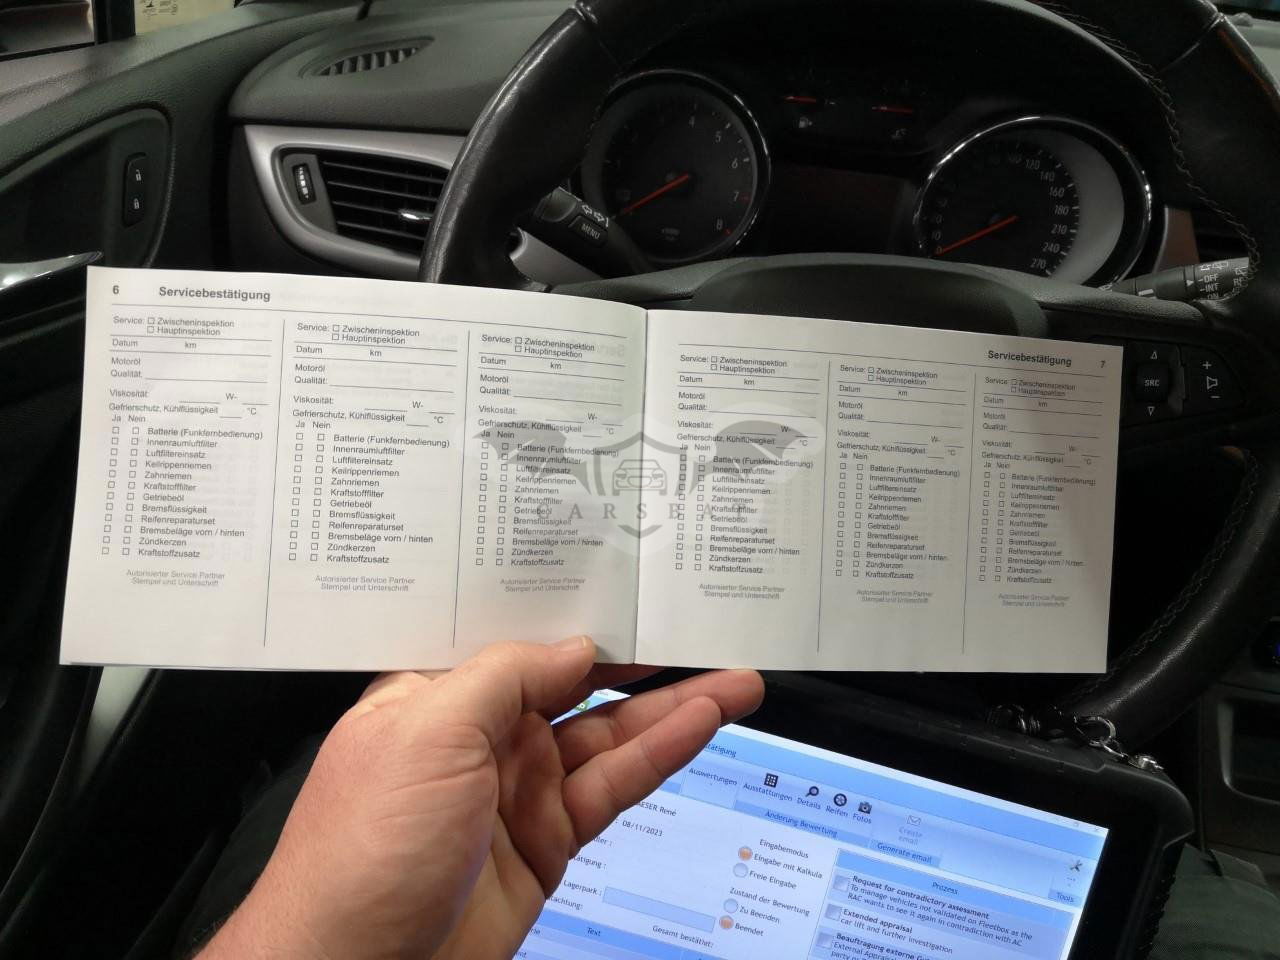 4
5
6
7
8
120
140
160
180
210
240
270
MENU
OFF
INT
SRC
6 Servicebestätigung
Service: Zwischeninspektion
Hauptinspektion
Datum km
Motoröl
Qualität:
Viskosität: W-
Gefrierschutz, Kühlflüssigkeit °C
Ja Nein
Batterie (Funkfernbedienung)
Innenraumluftfilter
Luftfiltereinsatz
Keilrippenriemen
Zahnriemen
Kraftstofffilter
Getriebeöl
Bremsflüssigkeit
Reifenreparaturset
Bremsbeläge vorn / hinten
Zündkerzen
Kraftstoffzusatz
Autorisierter Service Partner
Stempel und Unterschrift
Service: Zwischeninspektion
Hauptinspektion
Datum km
Motoröl
Qualität:
Viskosität: W-
Gefrierschutz, Kühlflüssigkeit °C
Ja Nein
Batterie (Funkfernbedienung)
Innenraumluftfilter
Luftfiltereinsatz
Keilrippenriemen
Zahnriemen
Kraftstofffilter
Getriebeöl
Bremsflüssigkeit
Reifenreparaturset
Bremsbeläge vorn / hinten
Zündkerzen
Kraftstoffzusatz
Autorisierter Service Partner
Stempel und Unterschrift
Service: Zwischeninspektion
Hauptinspektion
Datum km
Motoröl
Qualität:
Viskosität: W-
Gefrierschutz, Kühlflüssigkeit °C
Ja Nein
Batterie (Funkfernbedienung)
Innenraumluftfilter
Luftfiltereinsatz
Keilrippenriemen
Zahnriemen
Kraftstofffilter
Getriebeöl
Bremsflüssigkeit
Reifenreparaturset
Bremsbeläge vorn / hinten
Zündkerzen
Kraftstoffzusatz
Autorisierter Service Partner
Stempel und Unterschrift
Servicebestätigung 7
Service: Zwischeninspektion
Hauptinspektion
Datum km
Motoröl
Qualität:
Viskosität: W-
Gefrierschutz, Kühlflüssigkeit °C
Ja Nein
Batterie (Funkfernbedienung)
Innenraumluftfilter
Luftfiltereinsatz
Keilrippenriemen
Zahnriemen
Kraftstofffilter
Getriebeöl
Bremsflüssigkeit
Reifenreparaturset
Bremsbeläge vorn / hinten
Zündkerzen
Kraftstoffzusatz
Autorisierter Service Partner
Stempel und Unterschrift
Service: Zwischeninspektion
Hauptinspektion
Datum km
Motoröl
Qualität:
Viskosität: W-
Gefrierschutz, Kühlflüssigkeit °C
Ja Nein
Batterie (Funkfernbedienung)
Innenraumluftfilter
Luftfiltereinsatz
Keilrippenriemen
Zahnriemen
Kraftstofffilter
Getriebeöl
Bremsflüssigkeit
Reifenreparaturset
Bremsbeläge vorn / hinten
Zündkerzen
Kraftstoffzusatz
Autorisierter Service Partner
Stempel und Unterschrift
Service: Zwischeninspektion
Hauptinspektion
Datum km
Motoröl
Qualität:
Viskosität: W-
Gefrierschutz, Kühlflüssigkeit °C
Ja Nein
Batterie (Funkfernbedienung)
Innenraumluftfilter
Luftfiltereinsatz
Keilrippenriemen
Zahnriemen
Kraftstofffilter
Getriebeöl
Bremsflüssigkeit
Reifenreparaturset
Bremsbeläge vorn / hinten
Zündkerzen
Kraftstoffzusatz
Autorisierter Service Partner
Stempel und Unterschrift
Auswertungen Ausstattungen Details Reifen Fotos
Create
email
Änderung Bewertung
Generate email
Tools
René
08/11/2023
Lagerpark :
Text
Gesamt bestätigt:
Eingabemodus
Eingabe mit Kalkula
Freie Eingabe
Zustand der Bewertung
Zu Beenden
Beendet
Prozess
Request for contradictory assessment
To manage vehicles not validated on Fleetbox as the
RAC wants to see it again in contradiction with AC
Extended appraisal
car lift and further investigation
Beauftragung externe
External
party